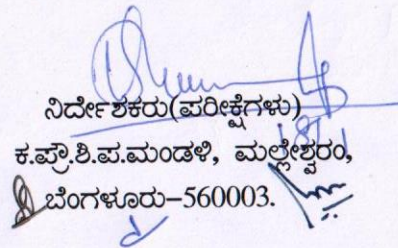 ನಿರ್ದೇಶಕರು(ಪರೀಕ್ಷೆಗಳು)
ಕ.ಪ್ರೌ.ಶಿ.ಪ.ಮಂಡಳಿ, ಮಲ್ಲೇಶ್ವರಂ,
ಬೆಂಗಳೂರು–560003.